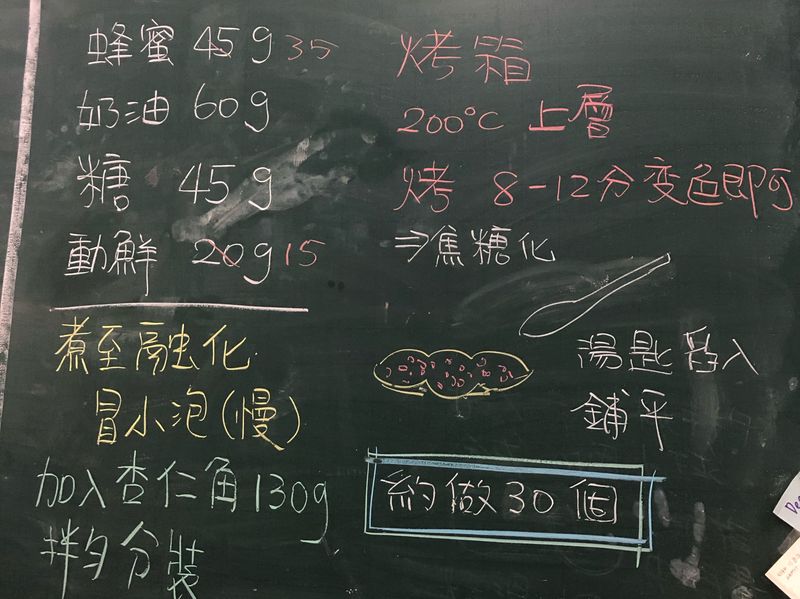 蜂蜜 45g 35
奶油 60g
糖 45g
動鮮 20g 15
煮至融化
冒小泡(慢)
加入杏仁角130g
拌勻分裝
烤箱
200°C 上層
烤 8-12分变色即可
⇒焦糖化
湯匙舀入
鋪平
約做30個